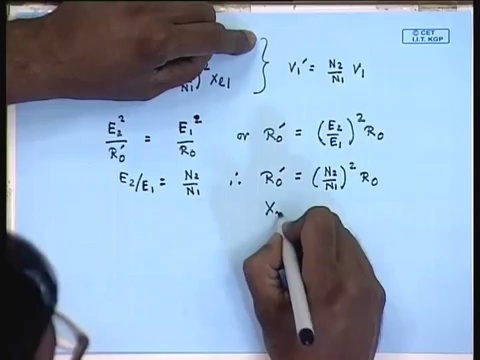 © CET
I.I.T. KGP
N1)² Xl1 } V1′ = N2/N1 V1
E2²/R0′ = E1²/R0 or R0′ = (E2/E1)² R0
E2/E1 = N2/N1 ∴ R0′ = (N2/N1)² R0
X